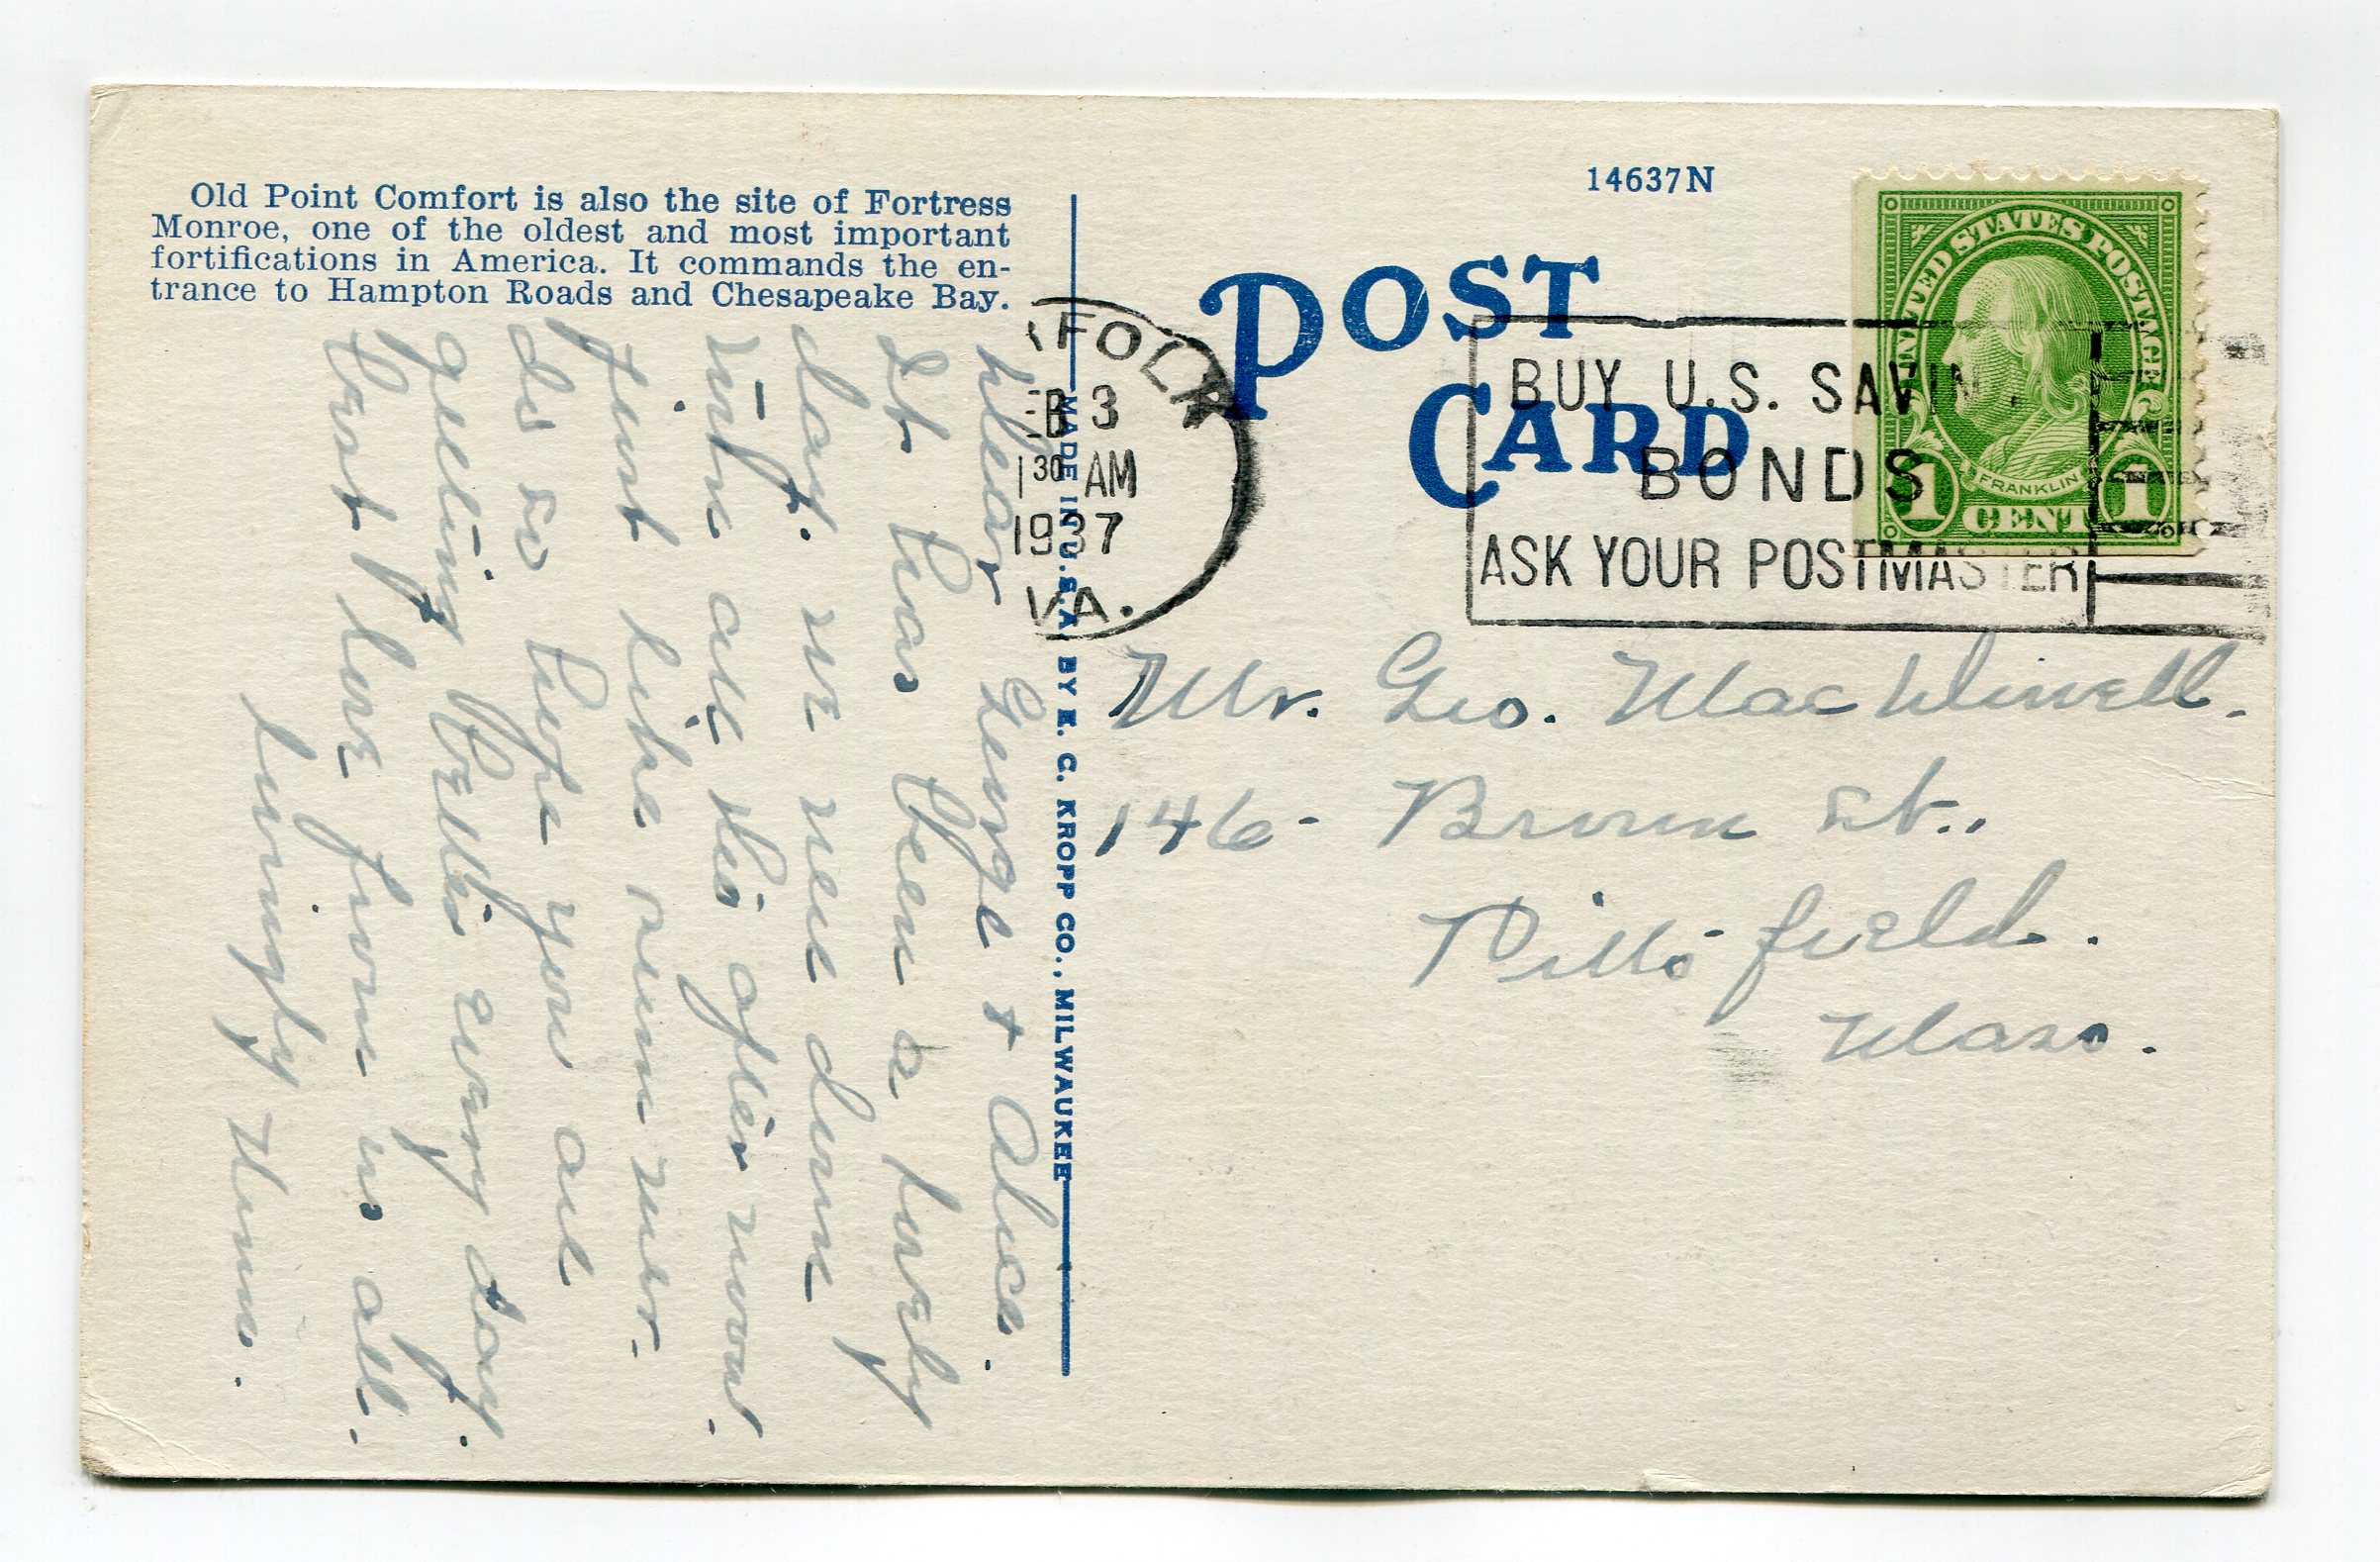 Old Point Comfort is also the site of Fortress
Monroe, one of the oldest and most important
fortifications in America. It commands the en-
trance to Hampton Roads and Chesapeake Bay.
Dear George & Alice.
It has been a lovely
day. we were down
in all this afternoon.
just like summer.
Do so hope you are
getting better every day.
Best love from us all.
Lovingly
MADE IN U.S.A. BY E. C. KROPP CO., MILWAUKEE
14637N
POST
CARD
FOLK
EB 3
30 AM
1937
VA.
BUY U.S. SAVIN
BONDS
ASK YOUR POSTMASTER
UNITED STATES POSTAGE
FRANKLIN
1 CENT 1
Mr. Geo.
146- Brown St.,
Pittsfield.
Mass.